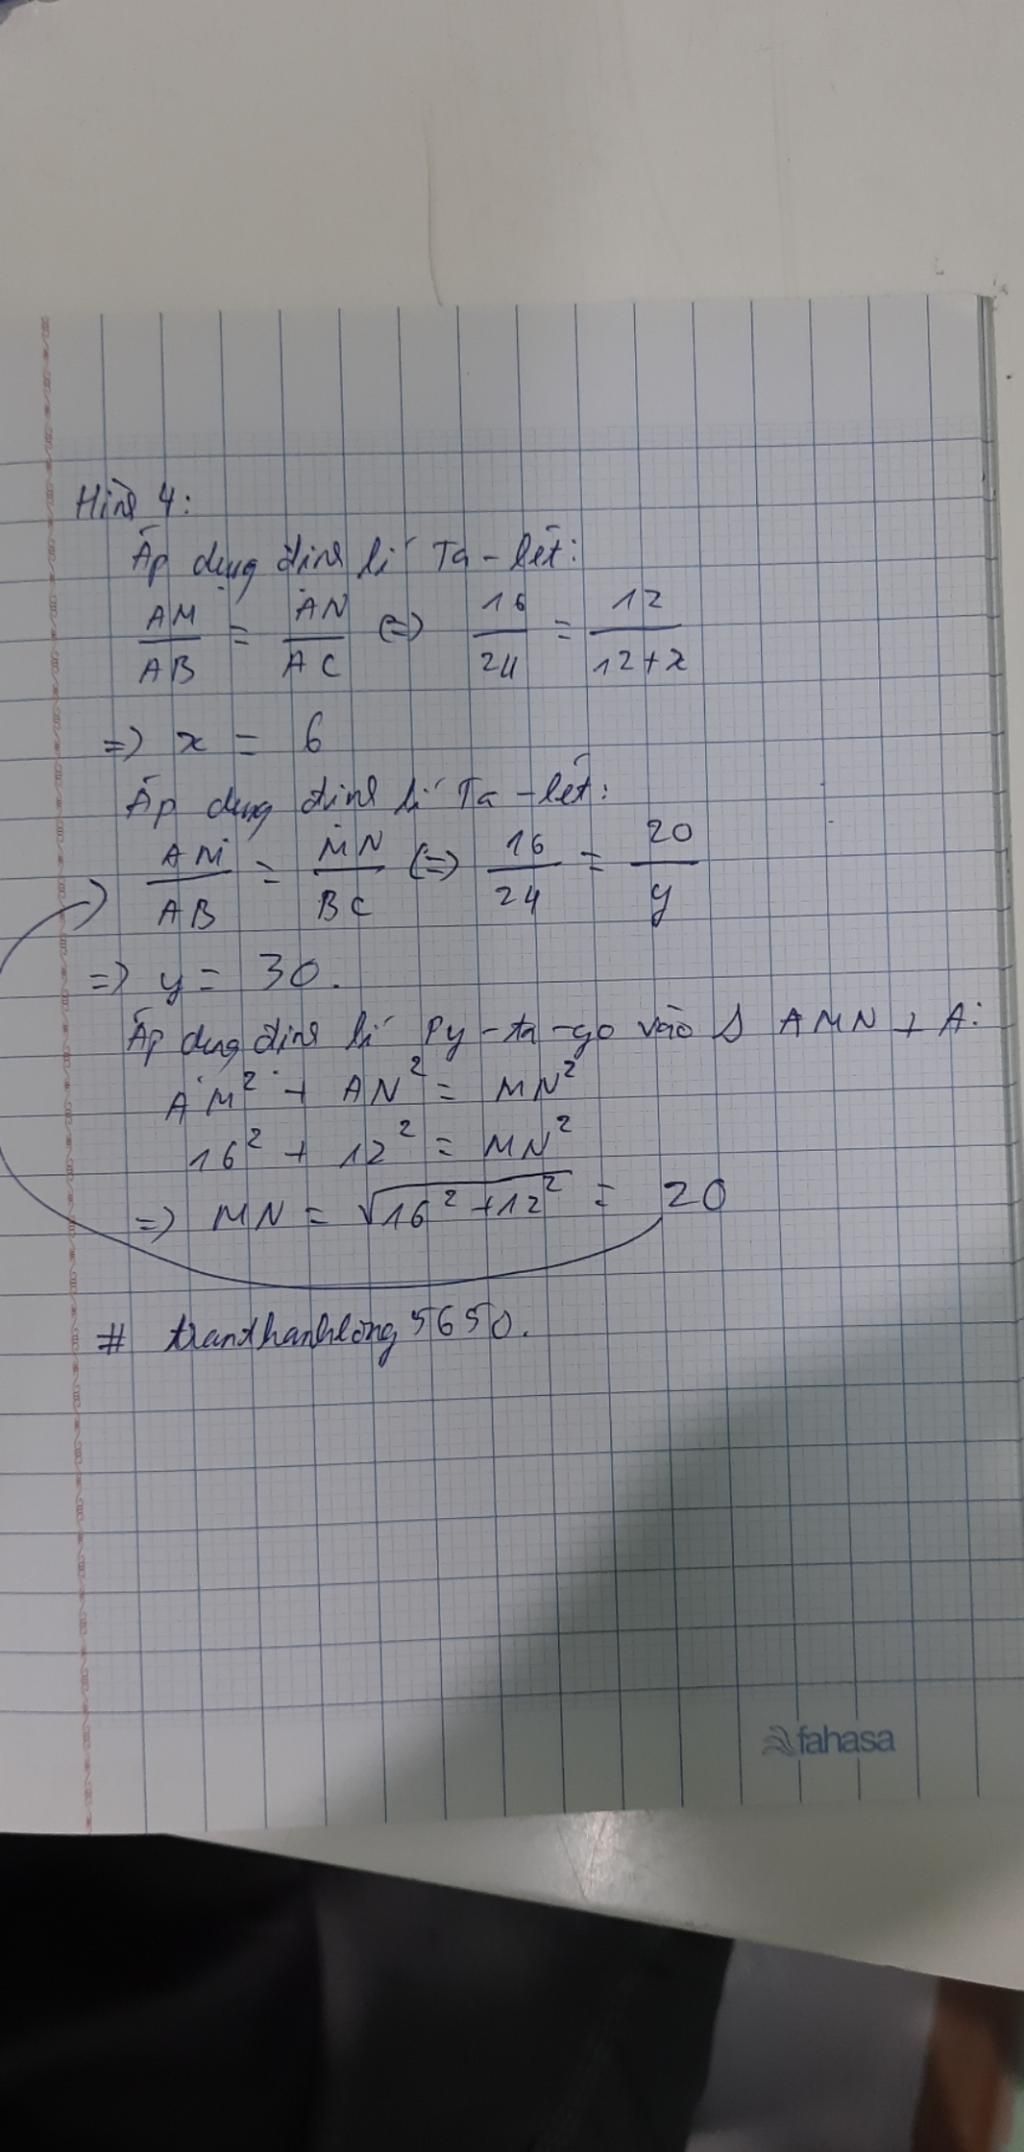 Hình 4:
Áp dụng định lí Ta-lét:
AM/AB = AN/AC <=> 16/24 = 12/12+x
=> x = 6
Áp dụng định lí Ta-lét:
AM/AB = MN/BC <=> 16/24 = 20/y
=> y = 30.
Áp dụng định lí Py-ta-go vào Δ AMN ⊥ A:
AM² + AN² = MN²
16² + 12² = MN²
=> MN = √16² + 12² = 20
# tranthanhlong5650.
fahasa